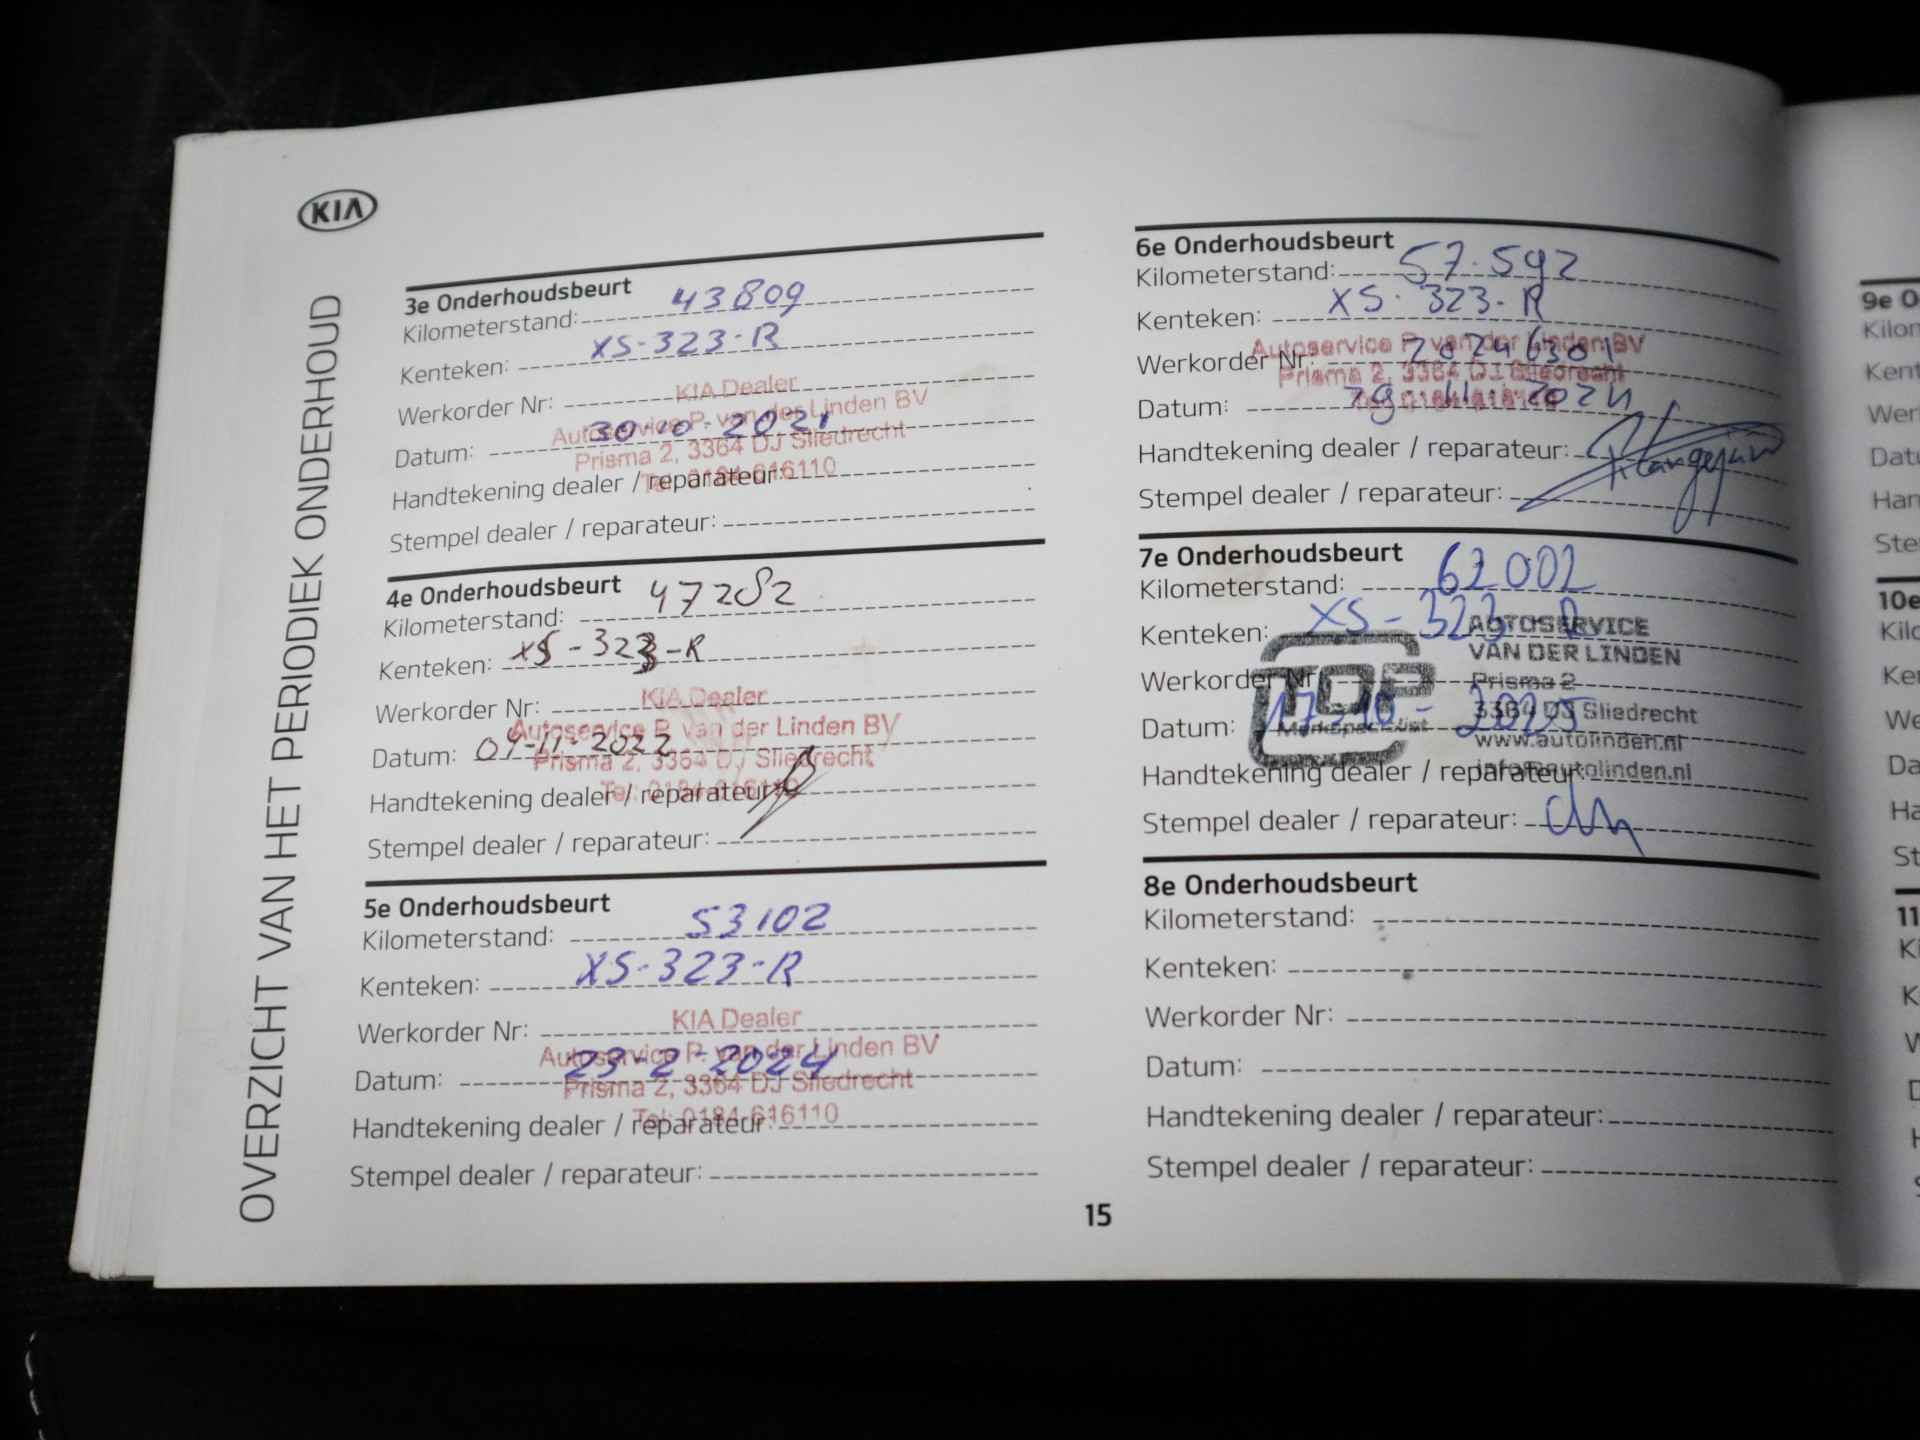 KIA
OVERZICHT VAN HET PERIODIEK ONDERHOUD
3e Onderhoudsbeurt
Kilometerstand: 43809
Kenteken: XS-323-R
Werkorder Nr:
KIA Dealer
Autoservice P. van der Linden BV
Datum: 30-10-2021
Prisma 2, 3364 DJ Sliedrecht
Tel: 0184-616110
Handtekening dealer / reparateur:
Stempel dealer / reparateur:
4e Onderhoudsbeurt
Kilometerstand: 47282
Kenteken: XS-323-R
Werkorder Nr:
KIA Dealer
Autoservice P. van der Linden BV
Datum: 04-11-2022
Prisma 2, 3364 DJ Sliedrecht
Tel: 0184-616110
Handtekening dealer / reparateur:
Stempel dealer / reparateur:
5e Onderhoudsbeurt
Kilometerstand: 53102
Kenteken: XS-323-R
Werkorder Nr:
KIA Dealer
Autoservice P. van der Linden BV
Datum: 23-2-2024
Prisma 2, 3364 DJ Sliedrecht
Tel: 0184-616110
Handtekening dealer / reparateur:
Stempel dealer / reparateur:
6e Onderhoudsbeurt
Kilometerstand: 57.592
Kenteken: XS-323-R
Autoservice P. van der Linden BV
Werkorder Nr: 20246301
Prisma 2, 3364 DJ Sliedrecht
Datum:
Handtekening dealer / reparateur:
Stempel dealer / reparateur:
7e Onderhoudsbeurt
Kilometerstand: 62002
Kenteken: XS-323-R
AUTOSERVICE
VAN DER LINDEN
Werkorder Nr:
TOP
Prisma 2
3364 DJ Sliedrecht
Datum: 17-10-2025
Merkspecialist
www.autolinden.nl
info@autolinden.nl
Handtekening dealer / reparateur:
Stempel dealer / reparateur:
8e Onderhoudsbeurt
Kilometerstand:
Kenteken:
Werkorder Nr:
Datum:
Handtekening dealer / reparateur:
Stempel dealer / reparateur:
15
9e O
Kilon
Kent
Wer
Datu
Han
Ste
10e
Kilo
Ke
We
Da
Ha
St
11